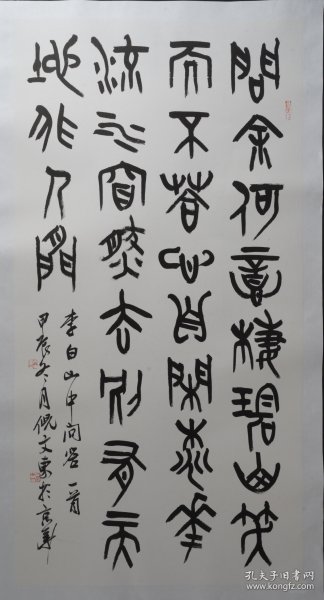 問余何意棲碧山笑
而不答心自閑桃華
流水窅然去別有天
地非人間
李白山中问答一首
甲辰冬月倪文東於京華
孔夫子旧书网